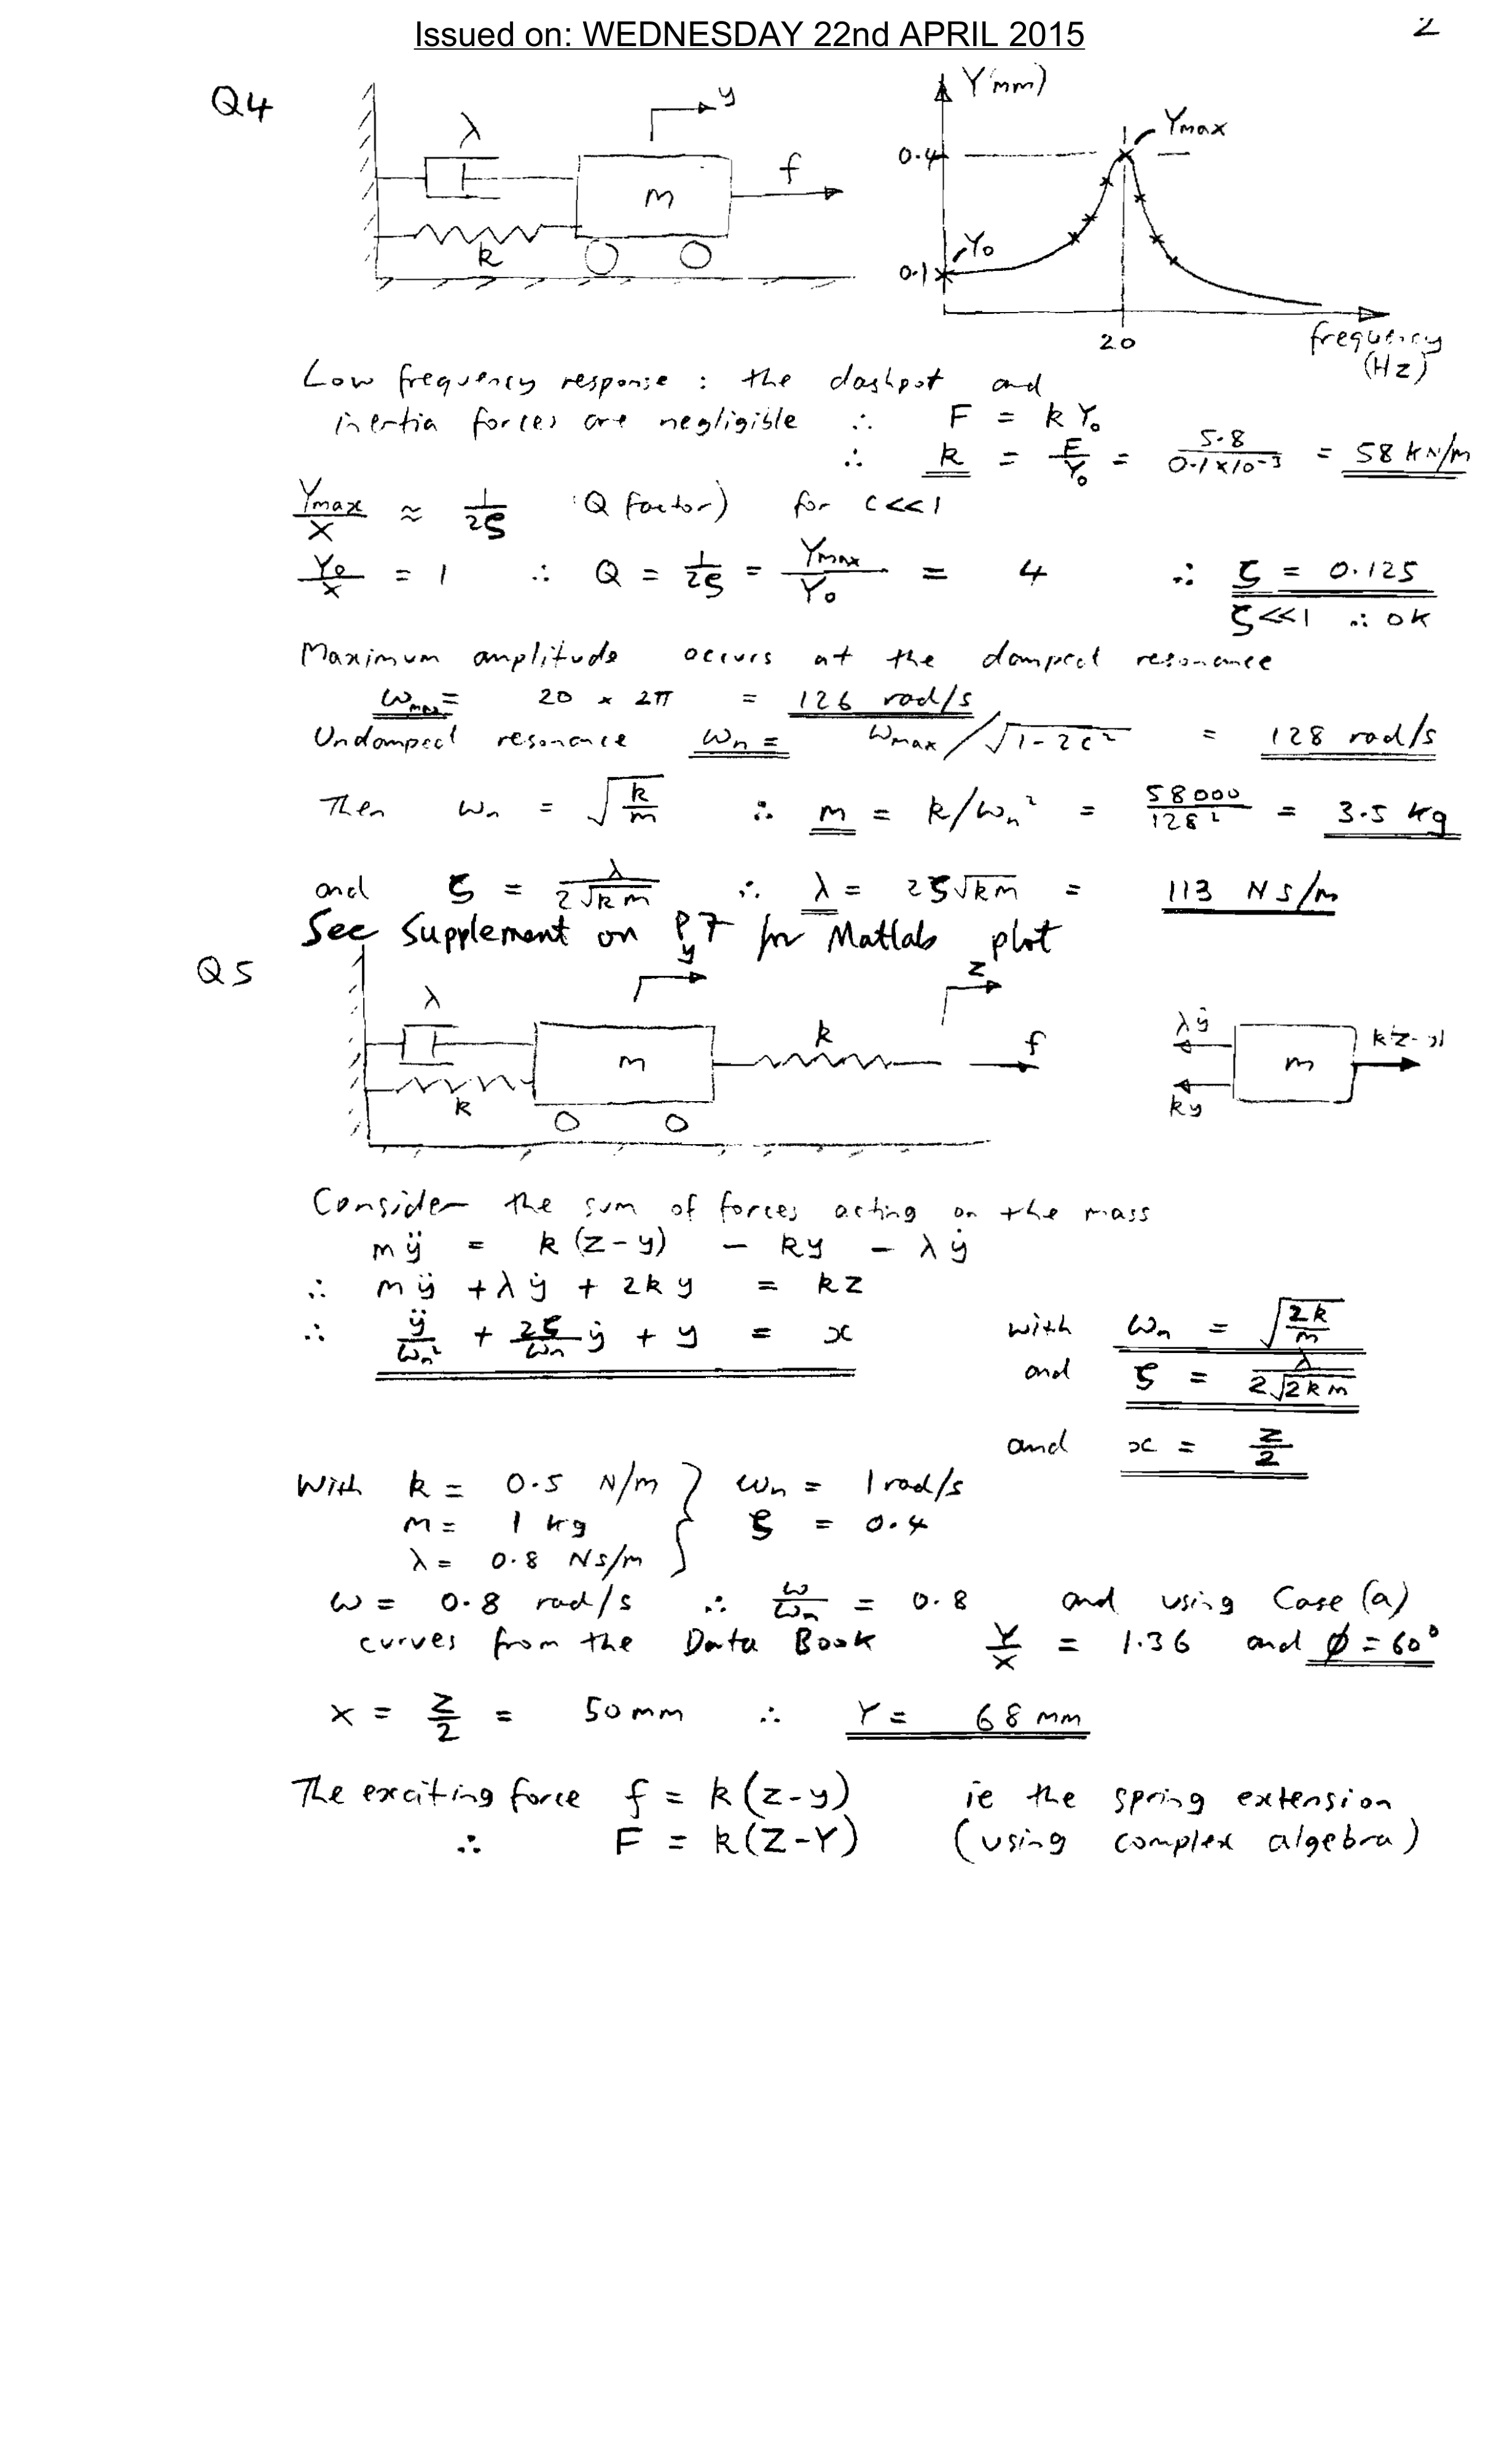 Issued on: WEDNESDAY 22nd APRIL 2015
2
Q4
λ
y
m
f
k
Y(mm)
Ymax
0.4
Y₀
0.1
20
frequency
(Hz)
Low frequency response : the dashpot and
inertia forces are negligible ∴ F = kY₀
∴ k = F/Y₀ = 5.8/0.1×10⁻³ = 58 kN/m
Ymax/X ≈ 1/2ζ (Q factor) for ζ<<1
Y₀/X = 1 ∴ Q = 1/2ζ = Ymax/Y₀ = 4 ∴ ζ = 0.125
ζ<<1 ∴ OK
Maximum amplitude occurs at the damped resonance
ωmax = 20 × 2π = 126 rad/s
Undamped resonance ωn = ωmax/√1-2ζ² = 128 rad/s
Then ωn = √k/m ∴ m = k/ωn² = 58000/128² = 3.5 kg
and ζ = λ/2√km ∴ λ = 2ζ√km = 113 Ns/m
See Supplement on P7 for Matlab plot
Q5
λ
y
z
k
m
f
k
λẏ
ky
m
k(z-y)
Consider the sum of forces acting on the mass
mÿ = k(z-y) - ky - λẏ
∴ mÿ + λẏ + 2ky = kz
∴ ÿ/ωn² + 2ζ/ωn ẏ + y = x with ωn = √2k/m
and ζ = λ/2√2km
and x = z/2
With k = 0.5 N/m } ωn = 1 rad/s
m = 1 kg ζ = 0.4
λ = 0.8 Ns/m
ω = 0.8 rad/s ∴ ω/ωn = 0.8 and using Case (a)
curves from the Data Book Y/X = 1.36 and φ = 60°
X = Z/2 = 50mm ∴ Y = 68 mm
The exciting force f = k(z-y) ie the spring extension
∴ F = k(Z-Y) (using complex algebra)